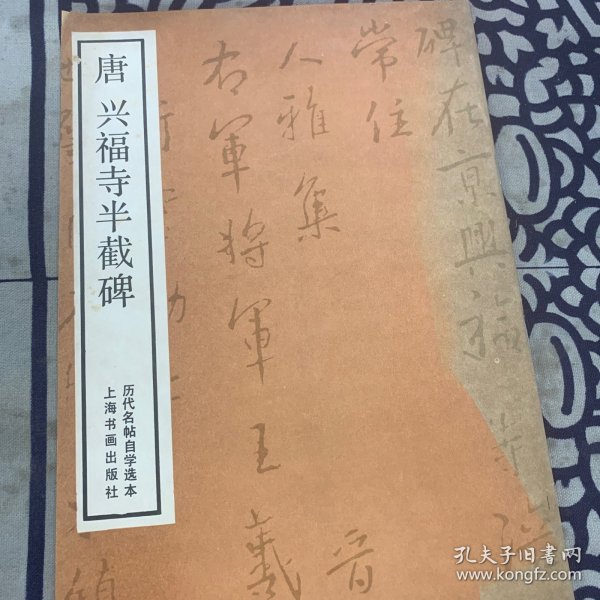 唐 兴福寺半截碑
历代名帖自学选本
上海书画出版社
碑在京興福寺
常住
人雅集
右軍將軍王羲
晋
孔夫子旧书网
www.kongfz.com